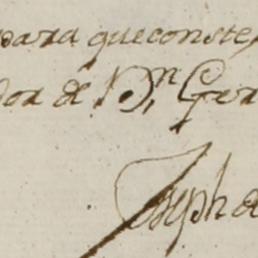 para que conste,
dor de D.n Ger
Joseph de